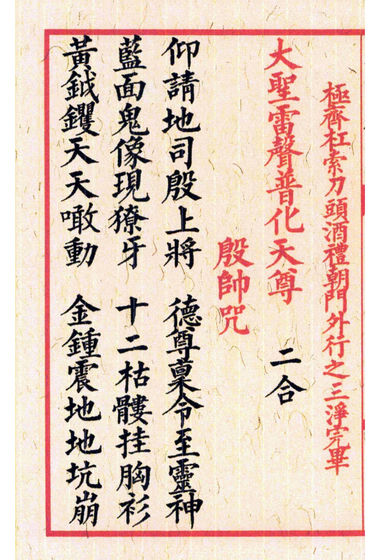 極齊杠索刀頭酒禮朝門外行之三淨完畢
大聖雷聲普化天尊 二合
殷帥咒
仰請地司殷上將 德尊稟令至靈神
藍面鬼像現獠牙 十二枯髏挂胸衫
黃鉞钁天天噉動 金鍾震地地坑崩